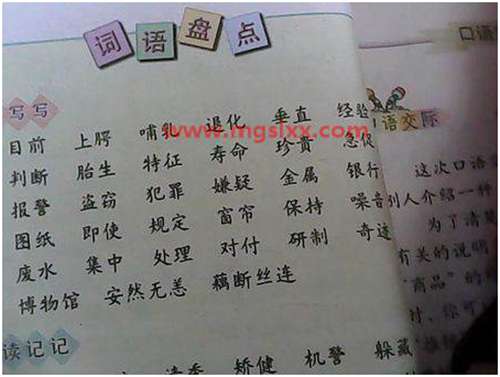 词语盘点
写写
目前 上腭 哺乳 退化 垂直 经验
判断 胎生 特征 寿命 珍贵 急促
报警 盗窃 犯罪 嫌疑 金属 银行
图纸 即使 规定 窗帘 保持 噪音
废水 集中 处理 对付 研制 奇迹
博物馆 安然无恙 藕断丝连
读记记
矫健 机警 躲藏
www.mgslxx.com
口语
口语交际
这次口语
别人介绍一种
为了清楚
有关的说明
“商品”的
时,你可